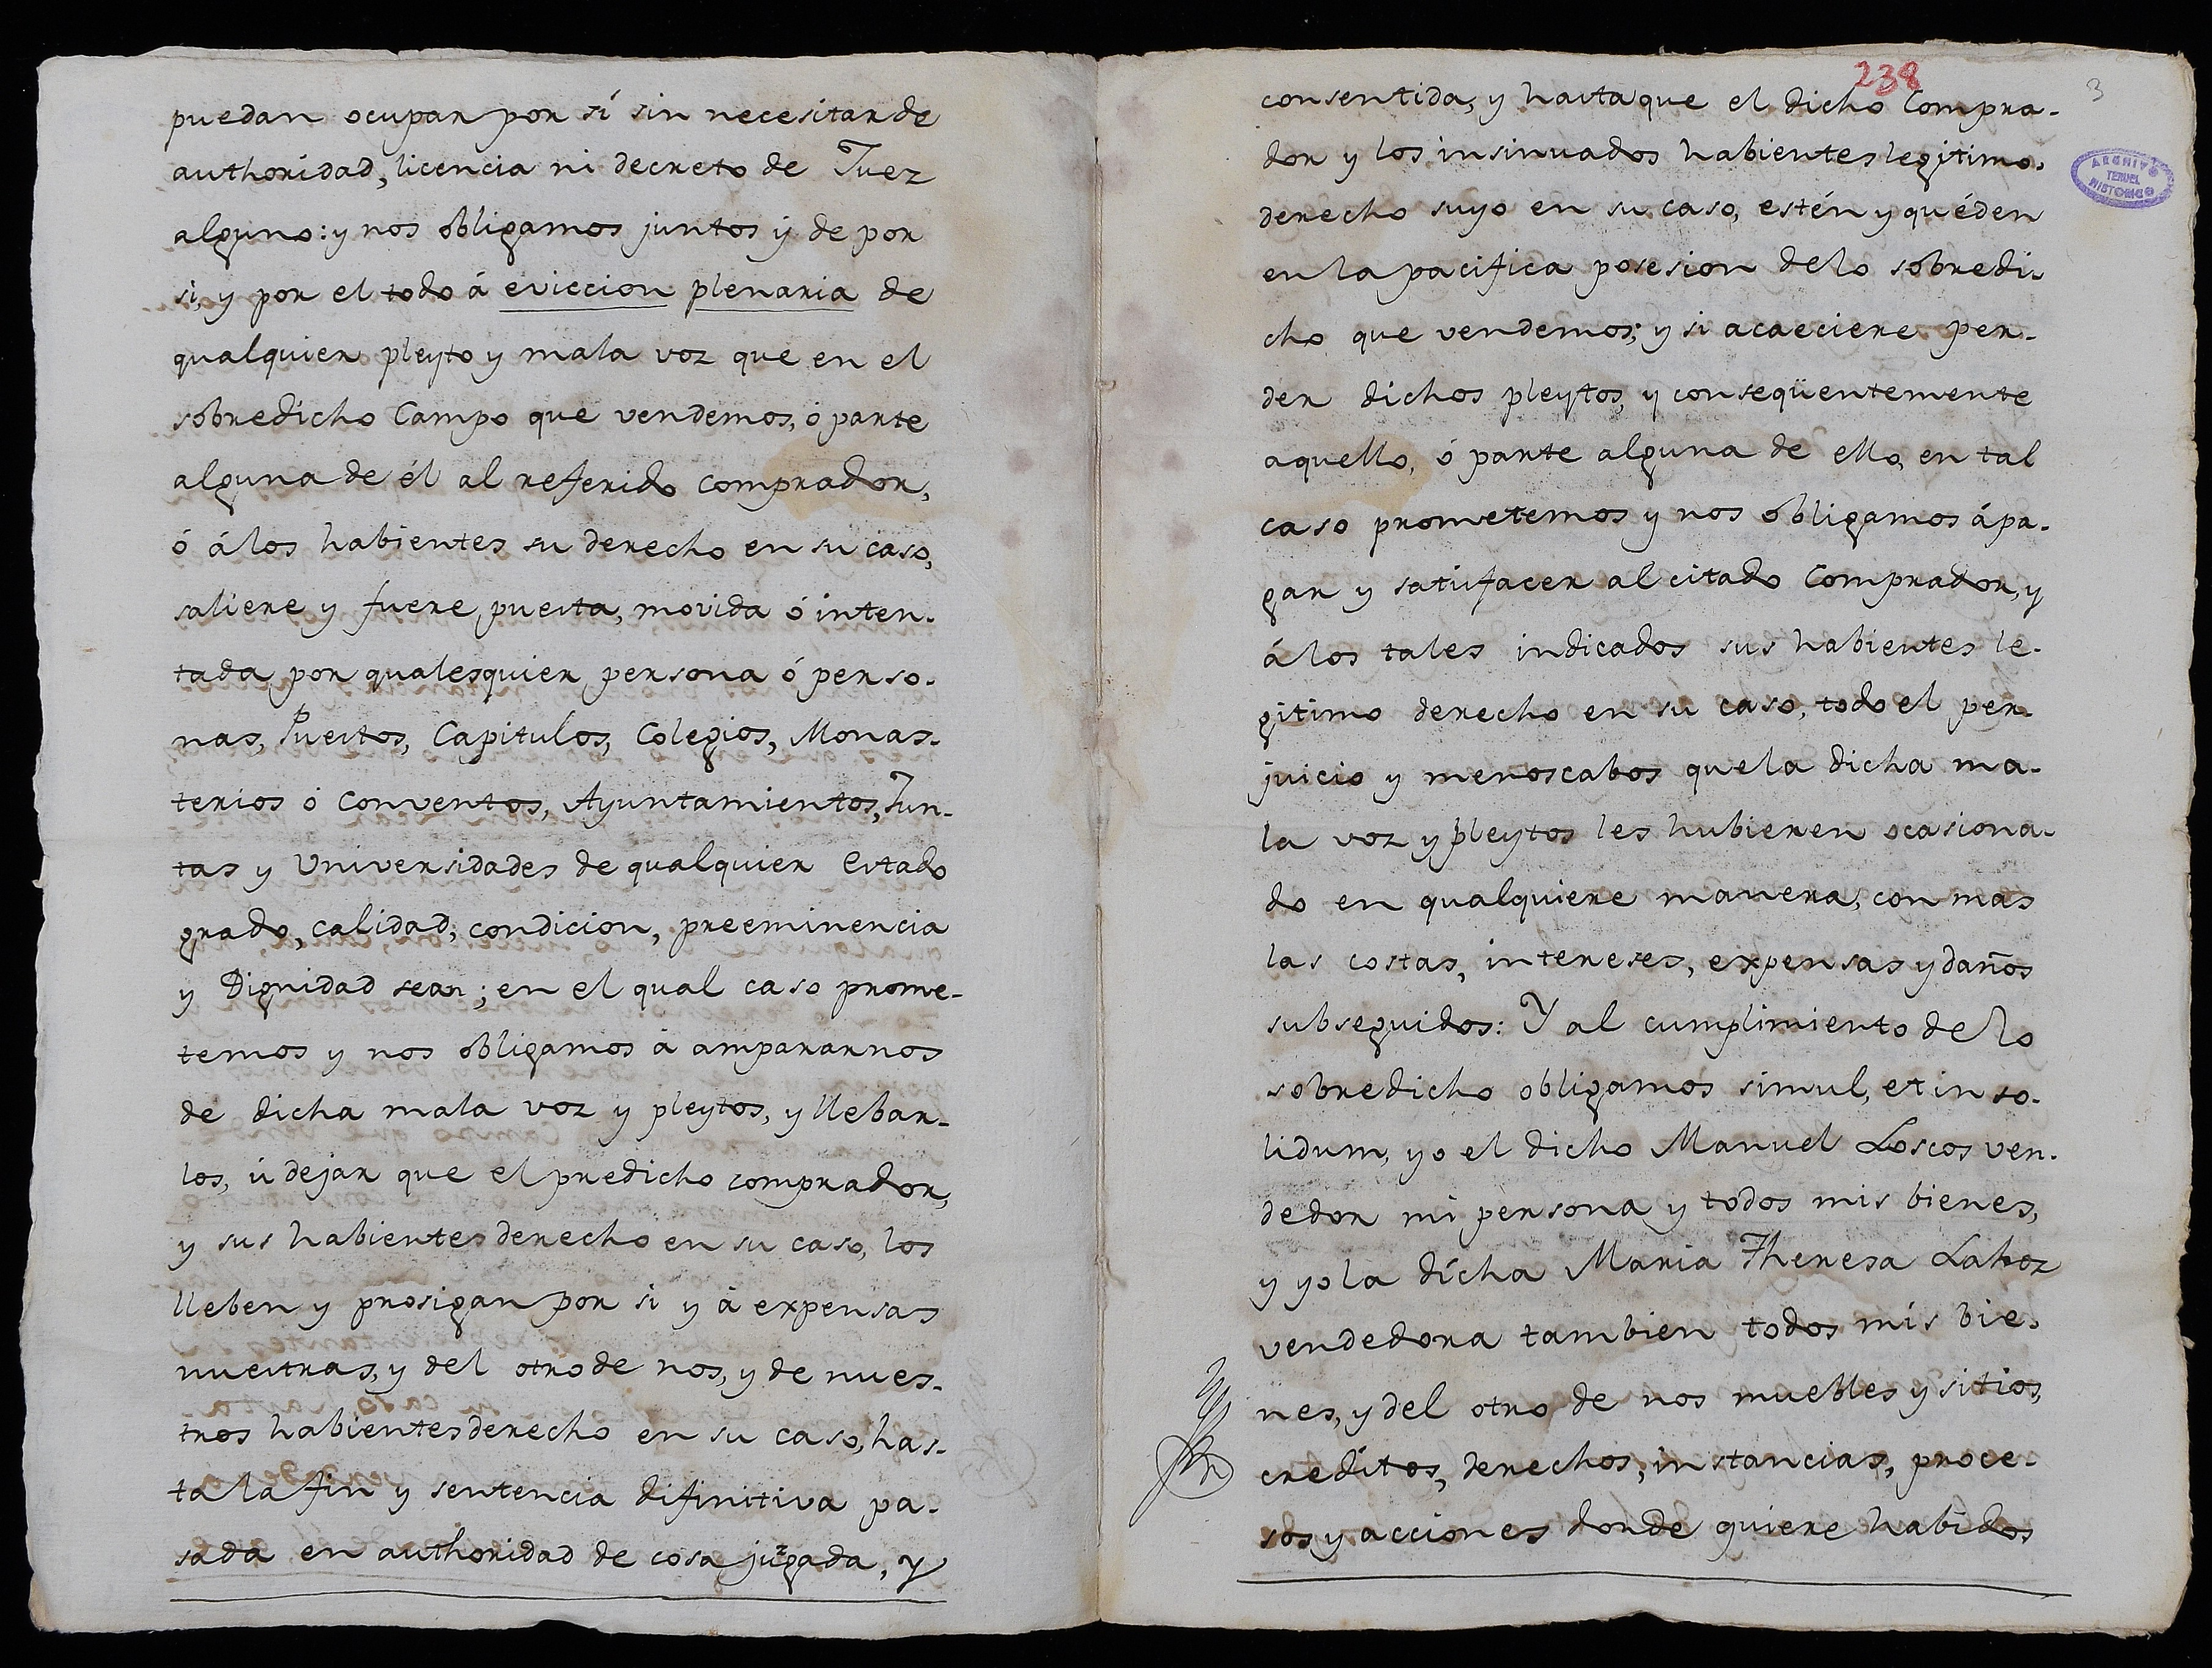 puedan ocupar por sí sin necesitar de
authoridad, licencia ni decreto de Juez
alguno: y nos obligamos juntos y de por
si, y por el todo á eviccion plenaria de
qualquier pleyto y mala voz que en el
sobredicho Campo que vendemos, ó parte
alguna de él al referido comprador,
ó á los habientes su derecho en su caso,
saliere y fuere puesta, movida ó inten-
tada por qualesquier persona ó perso-
nas, Puestos, Capitulos, Colegios, Monas-
terios ó Conventos, Ayuntamientos, Jun-
tas y Universidades de qualquier Estado
grado, calidad, condicion, preeminencia
y Dignidad sean; en el qual caso prome-
temos y nos obligamos á ampararnos
de dicha mala voz y pleytos, y llebar-
los, ú dejar que el predicho comprador,
y sus habientes derecho en su caso, los
lleben y prosigan por si y á expensas
nuestras, y del otro de nos, y de nues-
tros habientes derecho en su caso, has-
ta la fin y sentencia difinitiva pa-
sada en authoridad de cosa juzgada, y
238
3
ARCHIVO
TERUEL
HISTORICO
consentida, y hasta que el dicho Compra-
dor y los insinuados habientes legitimo
derecho suyo en su caso, estén y quéden
en la pacifica posesion de lo sobredi-
cho que vendemos; y si acaeciere per-
der dichos pleytos, y conseqüentemente
aquello, ó parte alguna de ello, en tal
caso prometemos y nos obligamos á pa-
gar y satisfacer al citado Comprador, y
á los tales indicados sus habientes le-
gitimo derecho en su caso, todo el per-
juicio y menoscabos que la dicha ma-
la voz y pleytos les hubieren ocasiona-
do en qualquiere manera, con mas
las costas, intereses, expensas y daños
subseguidos: Y al cumplimiento de lo
sobredicho obligamos simul, et in so-
lidum, yo el dicho Manuel Loscos ven-
dedor mi persona y todos mis bienes,
y yo la dicha Maria Theresa Lahoz
vendedora tambien todos mis bie-
nes, y del otro de nos muebles y sitios,
creditos, derechos, instancias, proce-
sos y acciones donde quiere habidos